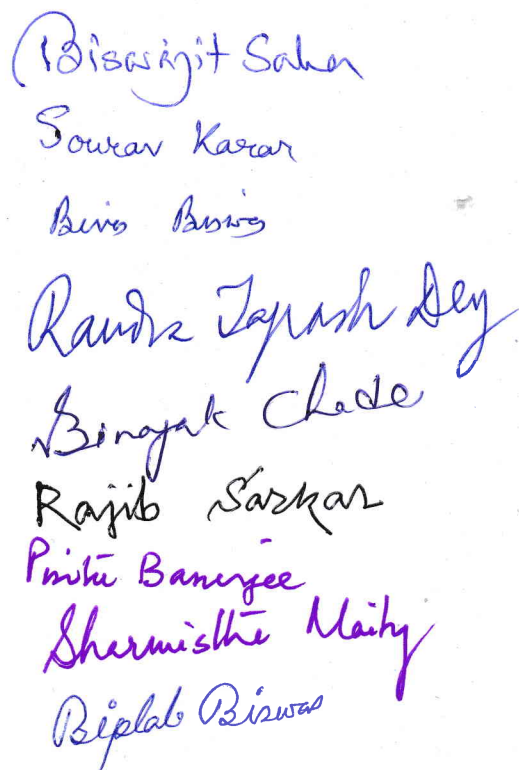 Biswajit Saha
Sourav Karar
Biswas
Tapash Dey
Binayak
Rajib Sarkar
Banerjee
Sharmistha Maity
Biplab Biswas